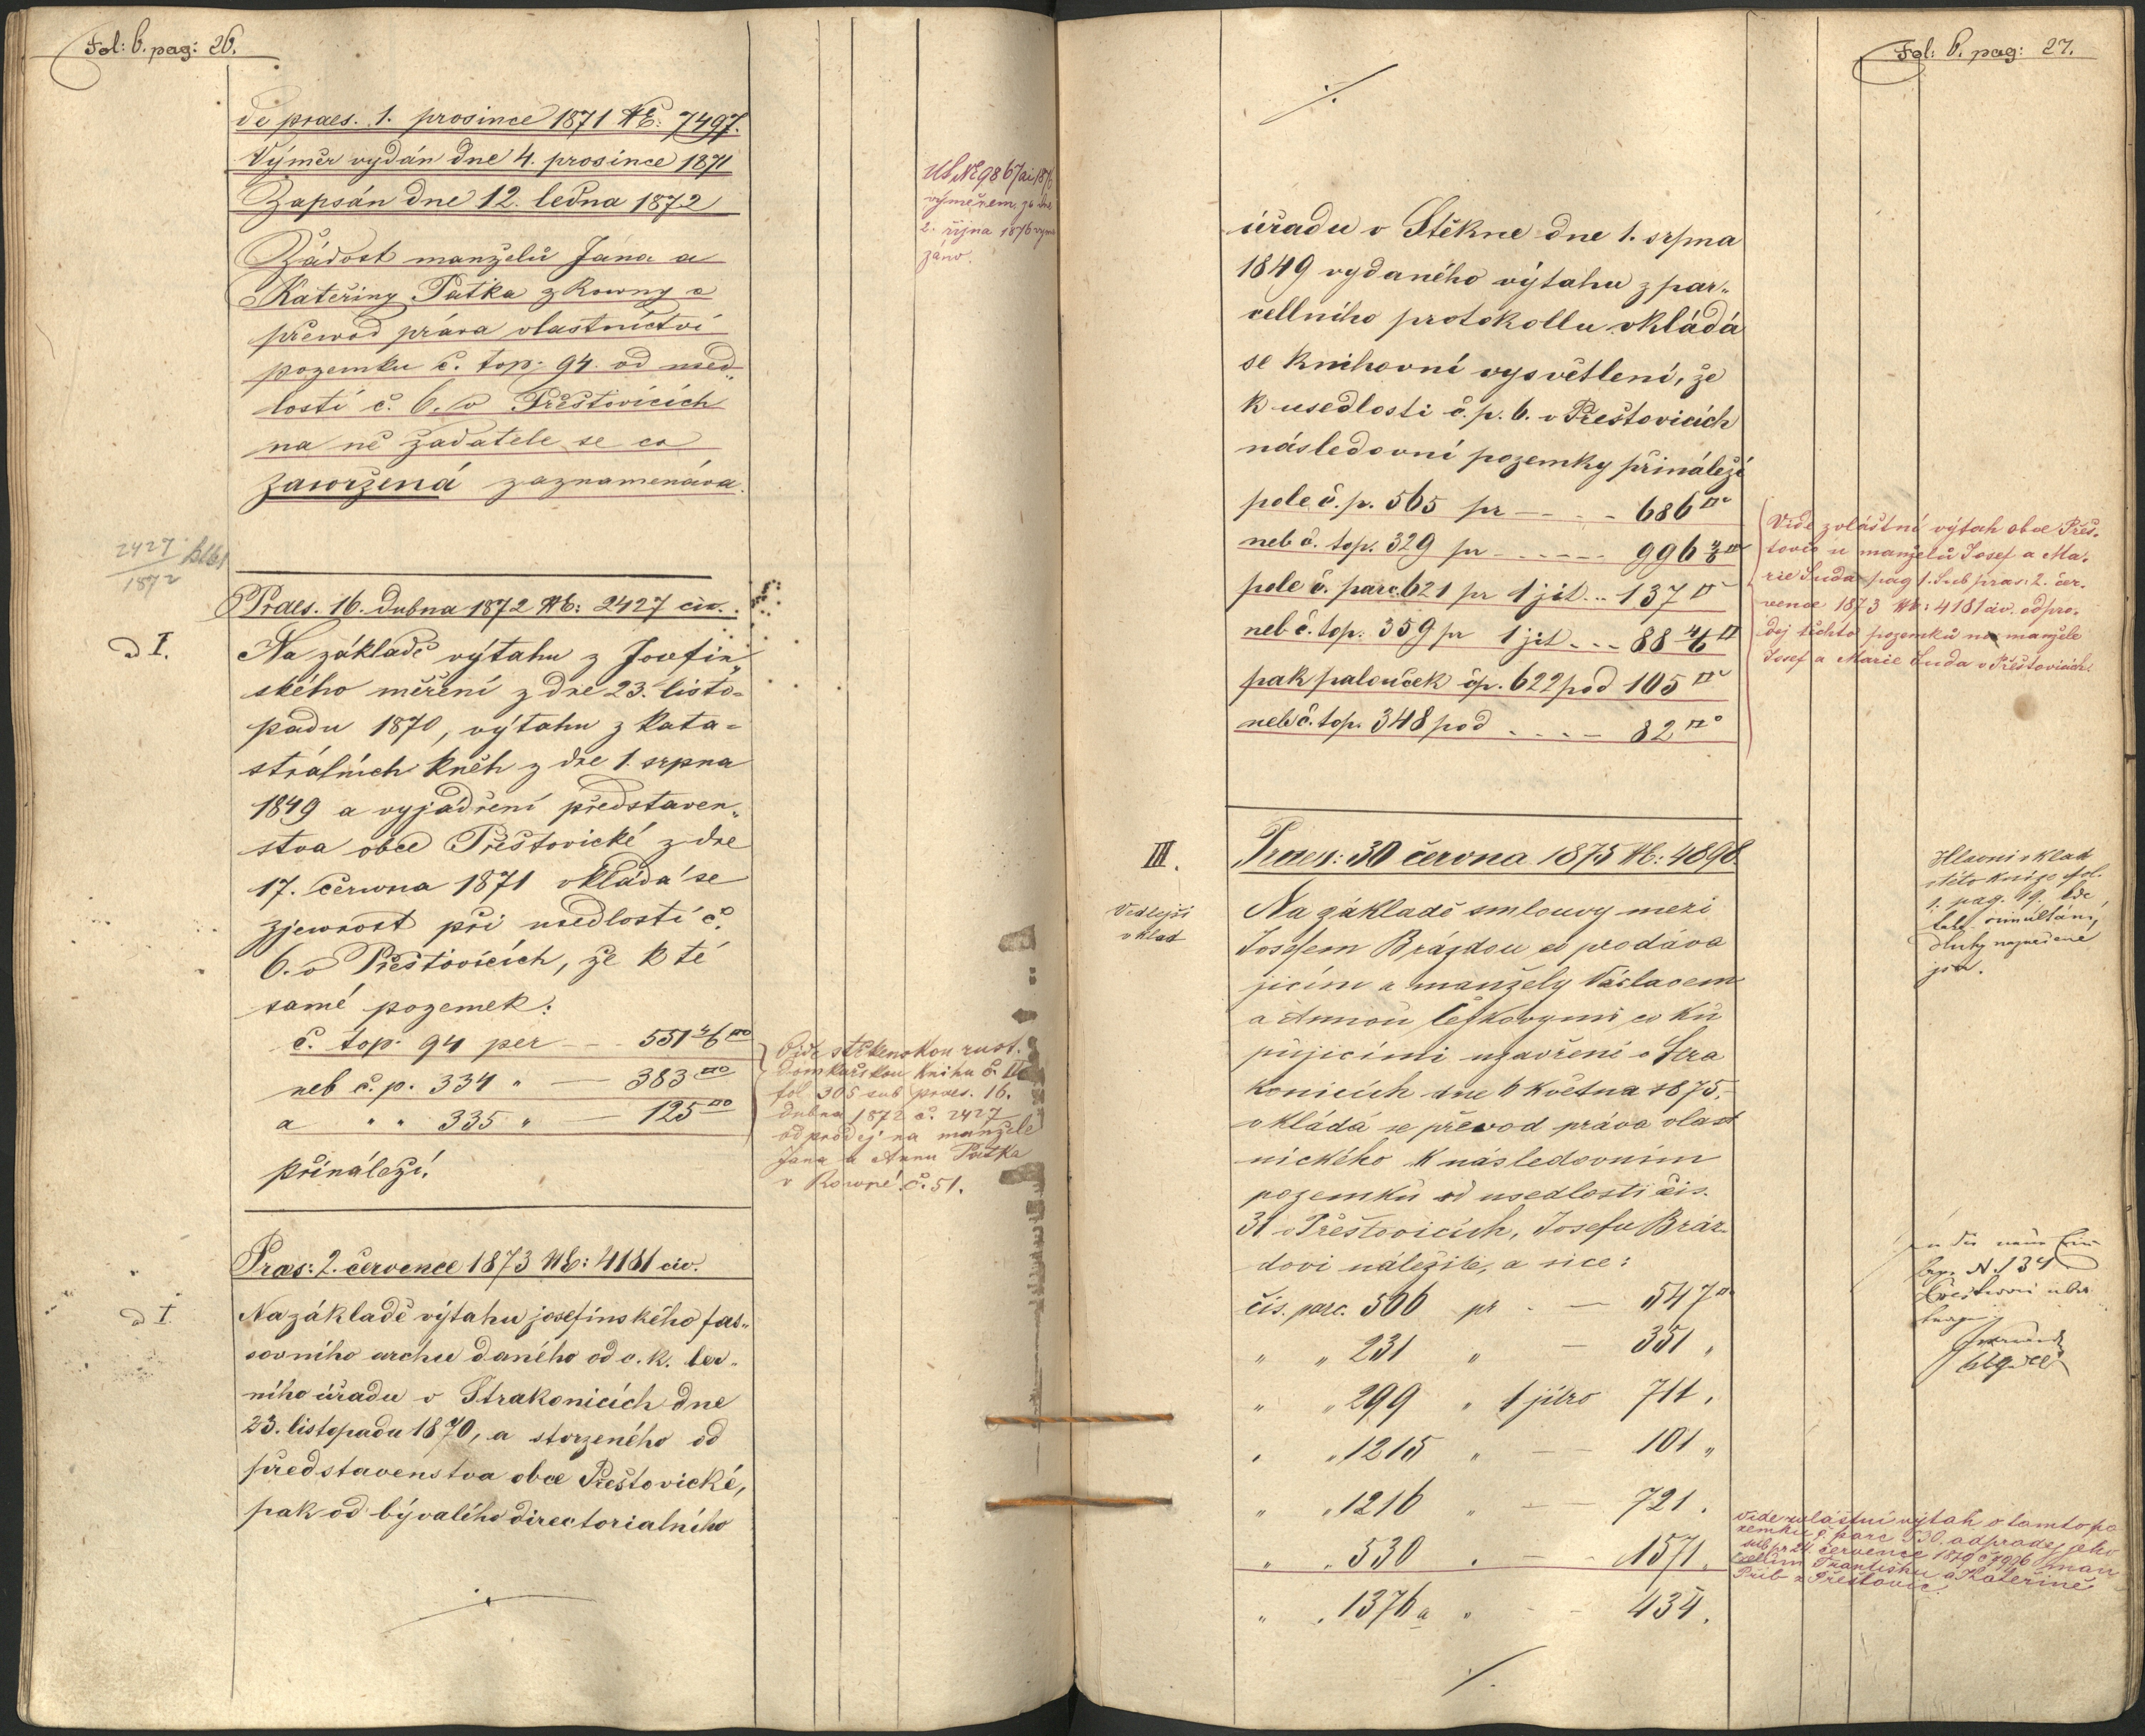 Fol: 6. pag: 26.
de praes. 1. prosince 1871 NE: 7497.
Výměr vydán dne 4. prosince 1871
Zapsán dne 12. ledna 1872
Žádost manželů Jana a
Kateřiny Patka z Rowny o
přewod práva vlastnictví
pozemku č. top: 94. od used„
losti č. 6. v Přeštovicích
na ně žadatele se co
zawržená zaznamenáva.
výměrem ze dne
2. října 1876 vyma
záno.
2427
1872
Praes. 16. dubna 1872 NE: 2427 civ.
ad I.
Na základě výtahu z Josefin„
ského měření z dne 23. listo=
padu 1870, výtahu z kata=
strálních kněh z dne 1. srpna
1849 a vyjádření představen„
stva obce Přeštovické z dne
17. června 1871 vkládá se
zjewnost při usedlosti č.
6. v Přeštovicích, že k té
samé pozemek:
č. top. 94 per — 551 4/6 □°
neb č. p. 334 „ — 383 □°
a „ „ 335 „ — 125 □°
přináleží.
Vide štěkenskou rust.
domkařskou knihu č. II
fol 305 sub praes. 16.
dubna 1872 č. 2427
odprodej na manžele
Jana a Annu Patka
v Rowné č. 51.
Praes: 2. července 1873 NE: 4181 civ.
ad I.
Na základě výtahu josefinského fas„
sovního archu daného od c. k. ber„
ního úřadu v Strakonicích dne
23. listopadu 1870, a stvrzeného od
představenstva obce Přeštovické,
pak od bývalého directorialního
./.
Fol: 6. pag: 27.
./.
úřadu v Štěkne dne 1. srpna
1849 vydaného výtahu z par„
cellního protokollu vkládá
se knihovní vysvětlení, že
k usedlosti č. p. 6. v Přeštovicích
následovní pozemky přináleží
pole č. p. 565 pr — — 686 □°
neb č. top. 329 pr — — 996 4/6 □°
pole č. parc. 621 pr 1 jit... 137 □°
neb č. top. 359 pr 1 jit... 88 4/6 □
pak palouček čp. 622 pod 105 □°
neb č. top. 348 pod .... 82 □°
Vide zvláštní výtah obce Přeš„
tovic u manželů Josef a Ma„
rie Suda pag 1. Sub praes: 2. čer„
vence 1873 NE: 4181 civ. odpro„
dej těchto pozemků na manžele
Josef a Marie Suda v Přeštovicích.
Praes: 30 června 1875 NE: 4898
III.
Vedlejší
vklad
Na základě smlouvy mezi
Josefem Brázdou co prodáva
jicím a manžely Václavem
a Annou Češkovými co ku
pujicími uzavřené v Stra
konicích dne 6 května 1875,
vkládá se převod práva vlast
nického k následovním
pozemkům od usedlosti čis.
31 v Přeštovicích, Josefu Bráz
dovi náležité, a sice:
čis. parc. 506 pr — 547 □°
„ „ 231 „ — 351 „
„ „ 299 „ 1 jitro 711 „
„ „ 1215 „ — 101 „
„ „ 1216 „ — 721 „
„ „ 530 „ — 1571 „
„ „ 1376 a „ — 434 „
./.
Hlavní vklad
v této knize fol.
1. pag. 19. kde
také simultání
dluhy najvedené
jsou.
vide zvláštní výtah o tamto po
zemku č. parc 530. odprodej jeho
sub pr 21. července 1879 č 4996 man
želům Františku a Kateřině
Prib z Přeštovic.